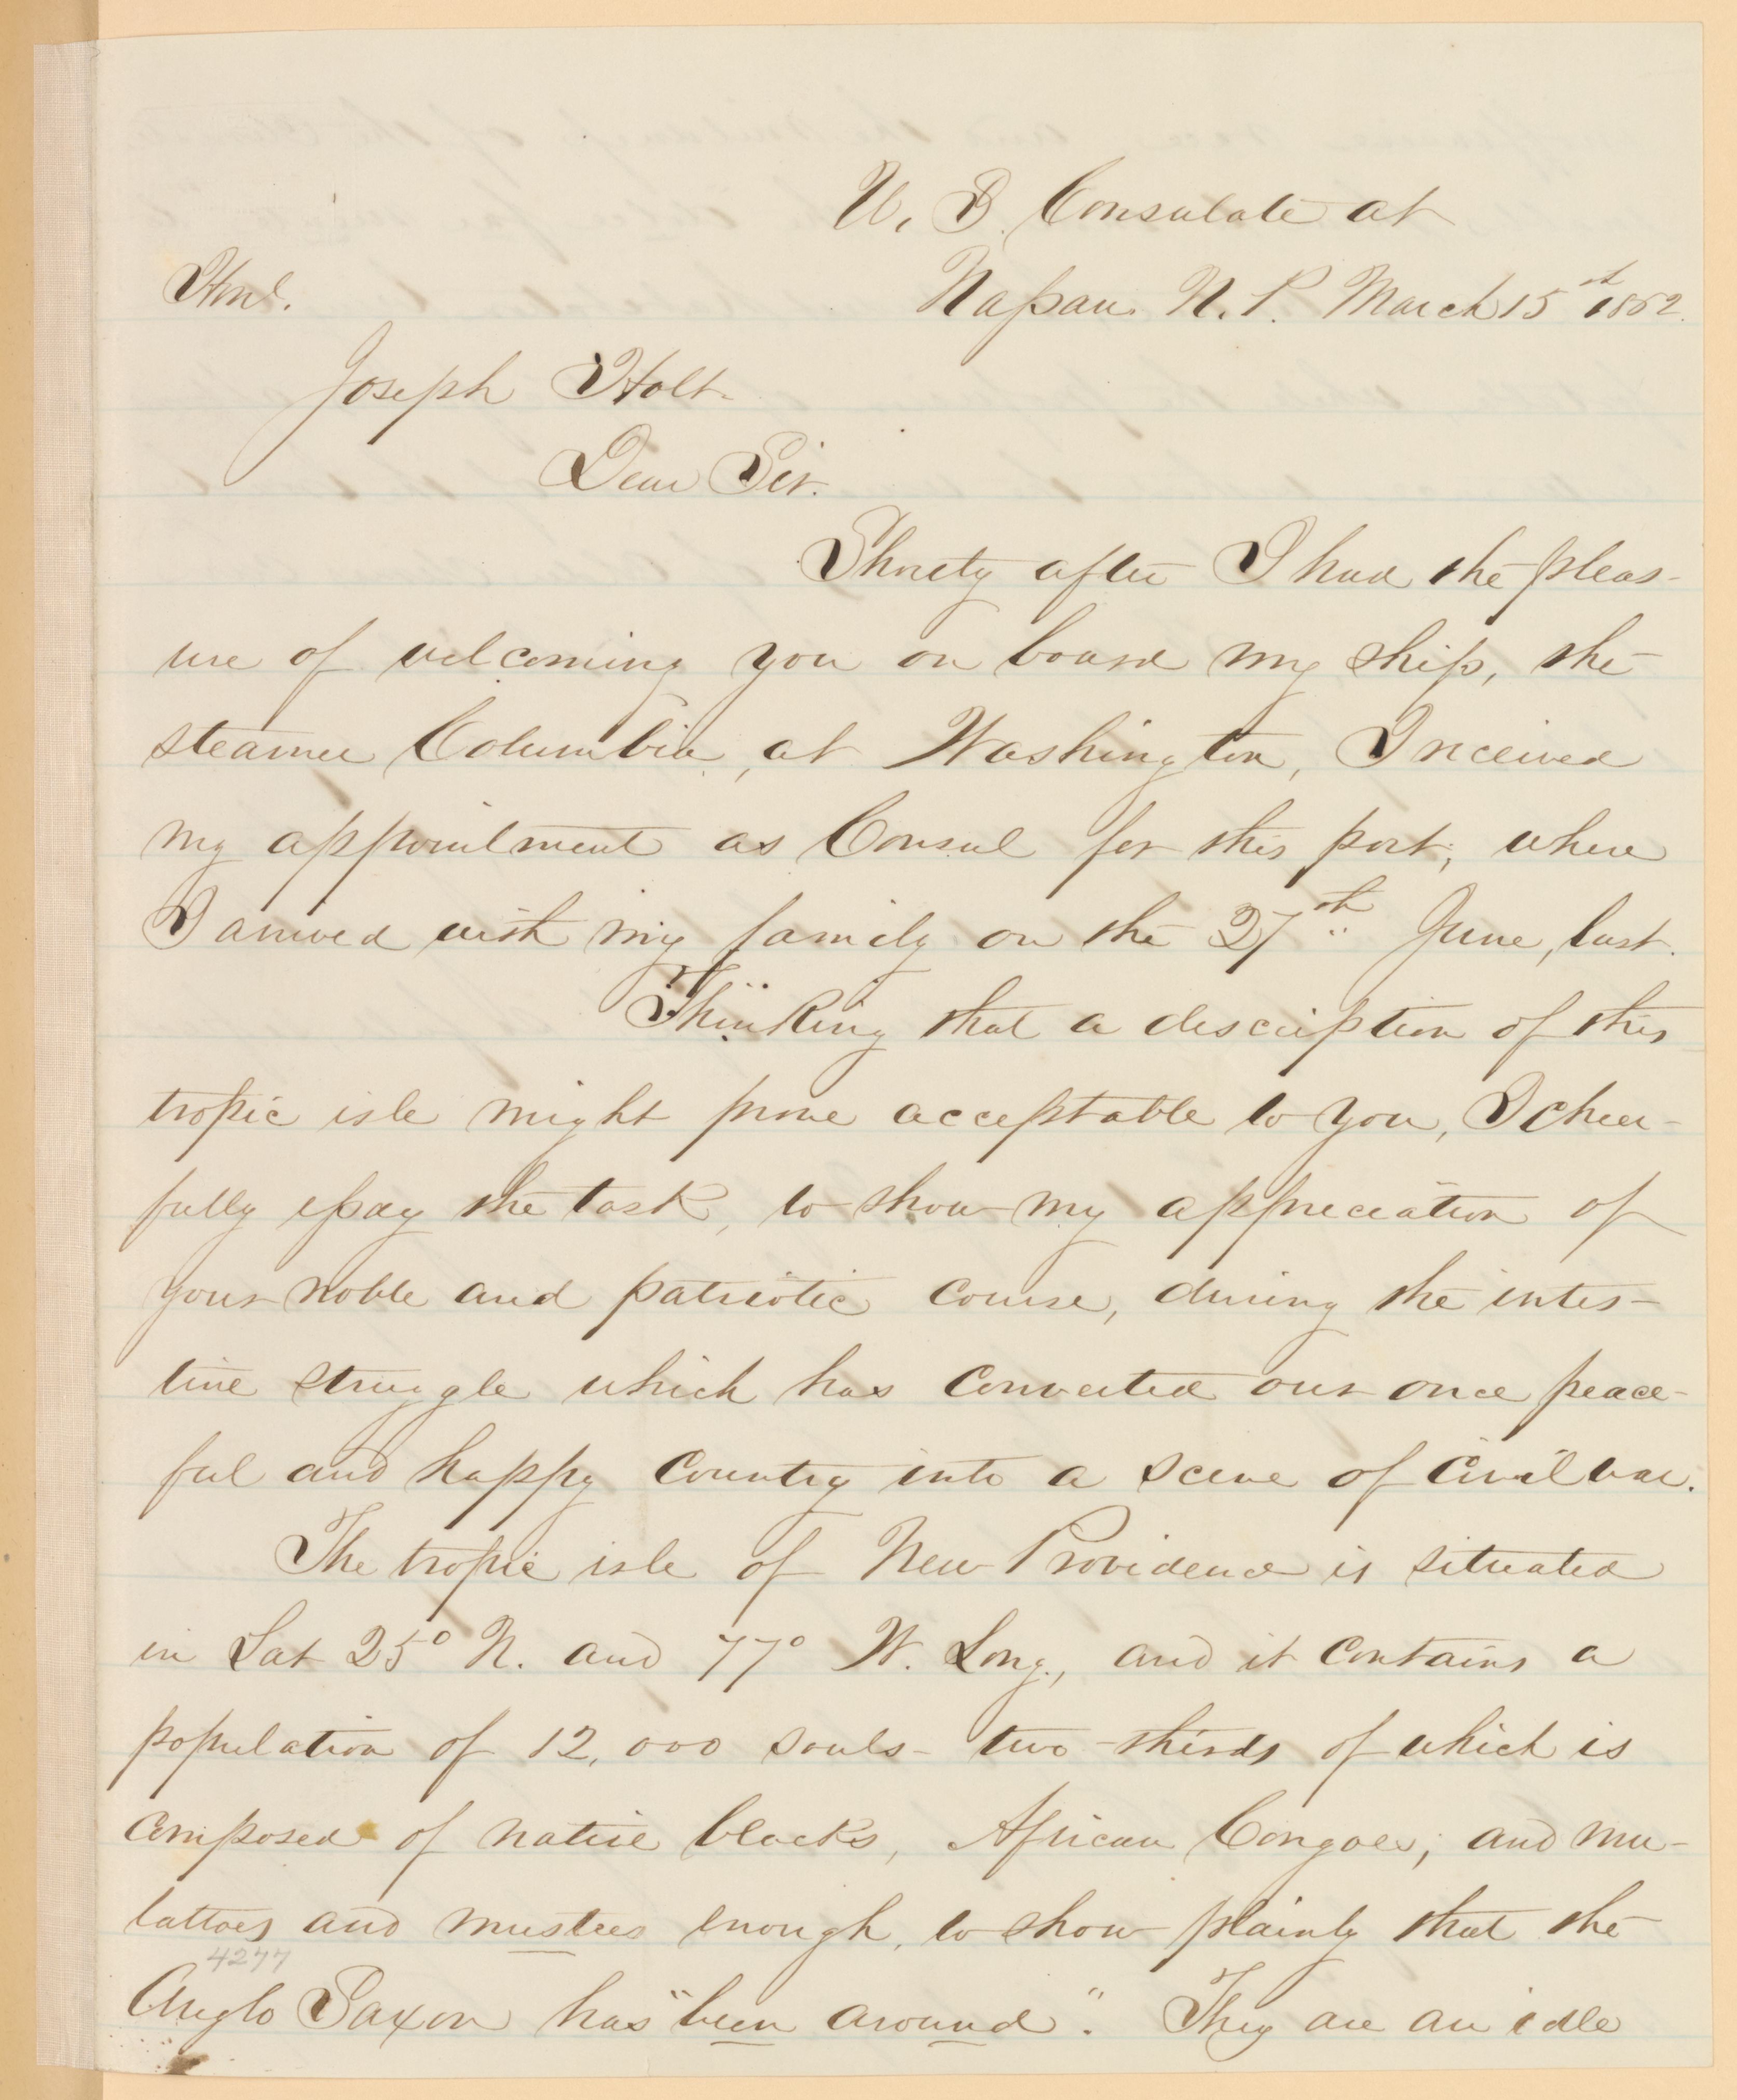 U. S. Consulate at
Nassau. N. P. March 15th 1862.
Honl.
Joseph Holt.
Dear Sir.
Shortly after I had the pleas-
ure of welcoming you on board my ship, the
steamer Columbia, at Washington, I received
my appointment as Consul for this port, where
I arrived with my family on the 27th June, last.
Thinking that a description of this
tropic isle might prove acceptable to you, I cheer-
fully essay the task, to show my appreciation of
your noble and patriotic course, during the intes-
tine struggle which has converted our once peace-
ful and happy country into a scene of civil war.
The tropic isle of New Providence is situated
in Lat 25° N. and 77° W. Long., and it contains a
population of 12,000 souls - two-thirds of which is
composed of native blacks, African Congoes; and mu-
lattoes and mustees enough, to show plainly that the
4277
Anglo Saxon has "been around". They are an idle